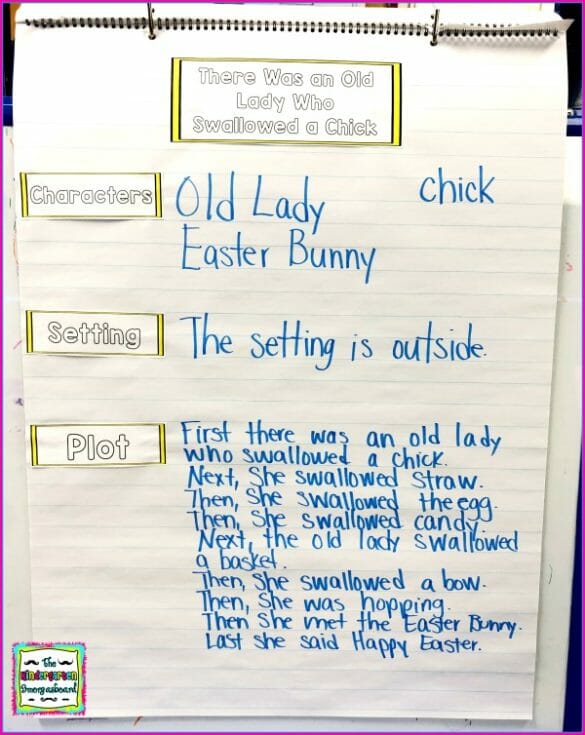 There Was an Old
Lady Who
Swallowed a Chick
Characters
Old Lady chick
Easter Bunny
Setting
The setting is outside.
Plot
First there was an old lady
who swallowed a chick.
Next, She swallowed straw.
Then, She swallowed the egg.
Then, She swallowed candy.
Next, the old lady swallowed
a basket.
Then, She swallowed a bow.
Then, She was hopping.
Then She met the Easter Bunny.
Last she said Happy Easter.
The
Kindergarten
Smorgasboard